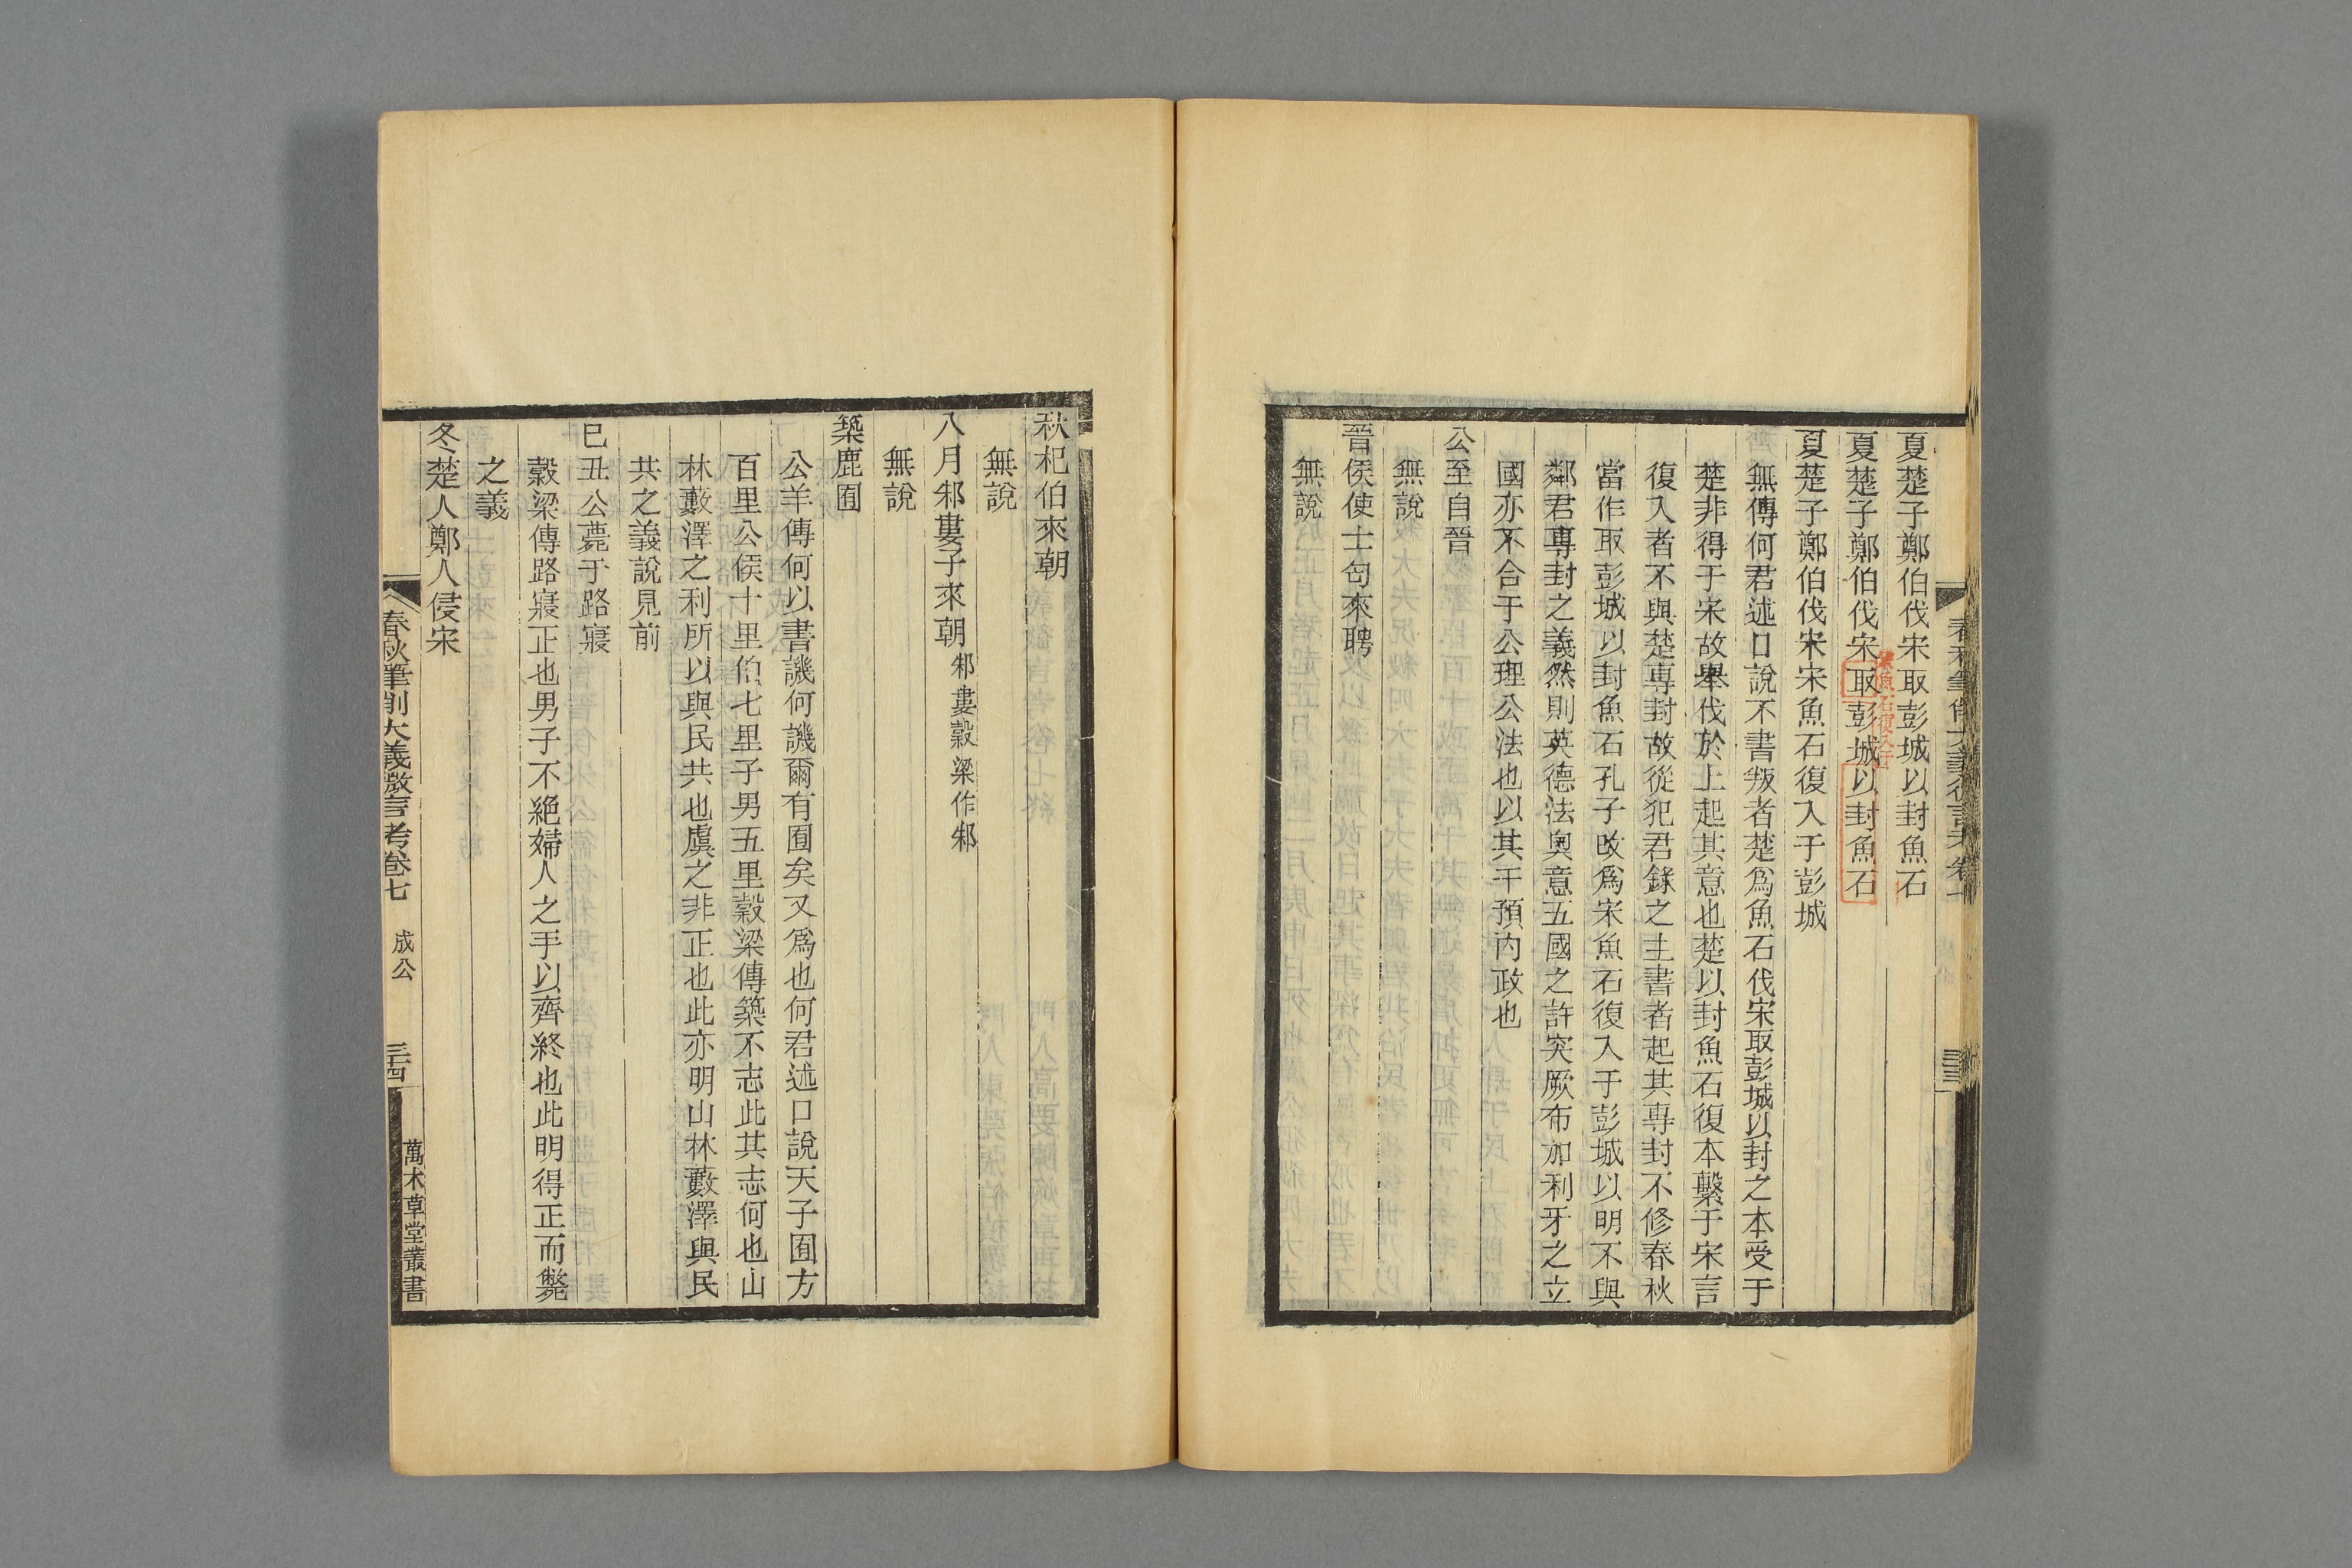 夏楚子鄭伯伐宋取彭城以封魚石
夏楚子鄭伯伐宋取彭城以封魚石
宋魚石復入于
夏楚子鄭伯伐宋宋魚石復入于彭城
無傳何君述口說不書叛者楚爲魚石伐宋取彭城以封之本受于
楚非得于宋故舉伐於上起其意也楚以封魚石復本繫于宋言
復入者不與楚專封故從犯君錄之主書者起其專封不修春秋
當作取彭城以封魚石孔子改爲宋魚石復入于彭城以明不與
鄰君專封之義然則英德法奧意五國之許突厥布加利牙之立
國亦不合于公理公法也以其干預內政也
公至自晉
無說
晉侯使士匄來聘
無說
秋杞伯來朝
無說
八月邾婁子來朝邾婁穀梁作邾
無說
築鹿囿
公羊傳何以書譏何譏爾有囿矣又爲也何君述口說天子囿方
百里公侯十里伯七里子男五里穀梁傳築不志此其志何也山
林藪澤之利所以與民共也虞之非正也此亦明山林藪澤與民
共之義說見前
己丑公薨于路寢
穀梁傳路寢正也男子不絕婦人之手以齊終也此明得正而斃
之義
冬楚人鄭人侵宋
春秋筆削大義微言考卷七 成公 三四 萬木草堂叢書